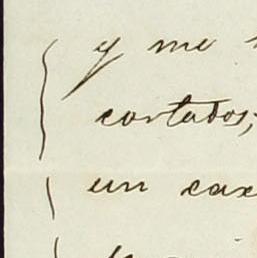 y me
cortados;
un cax